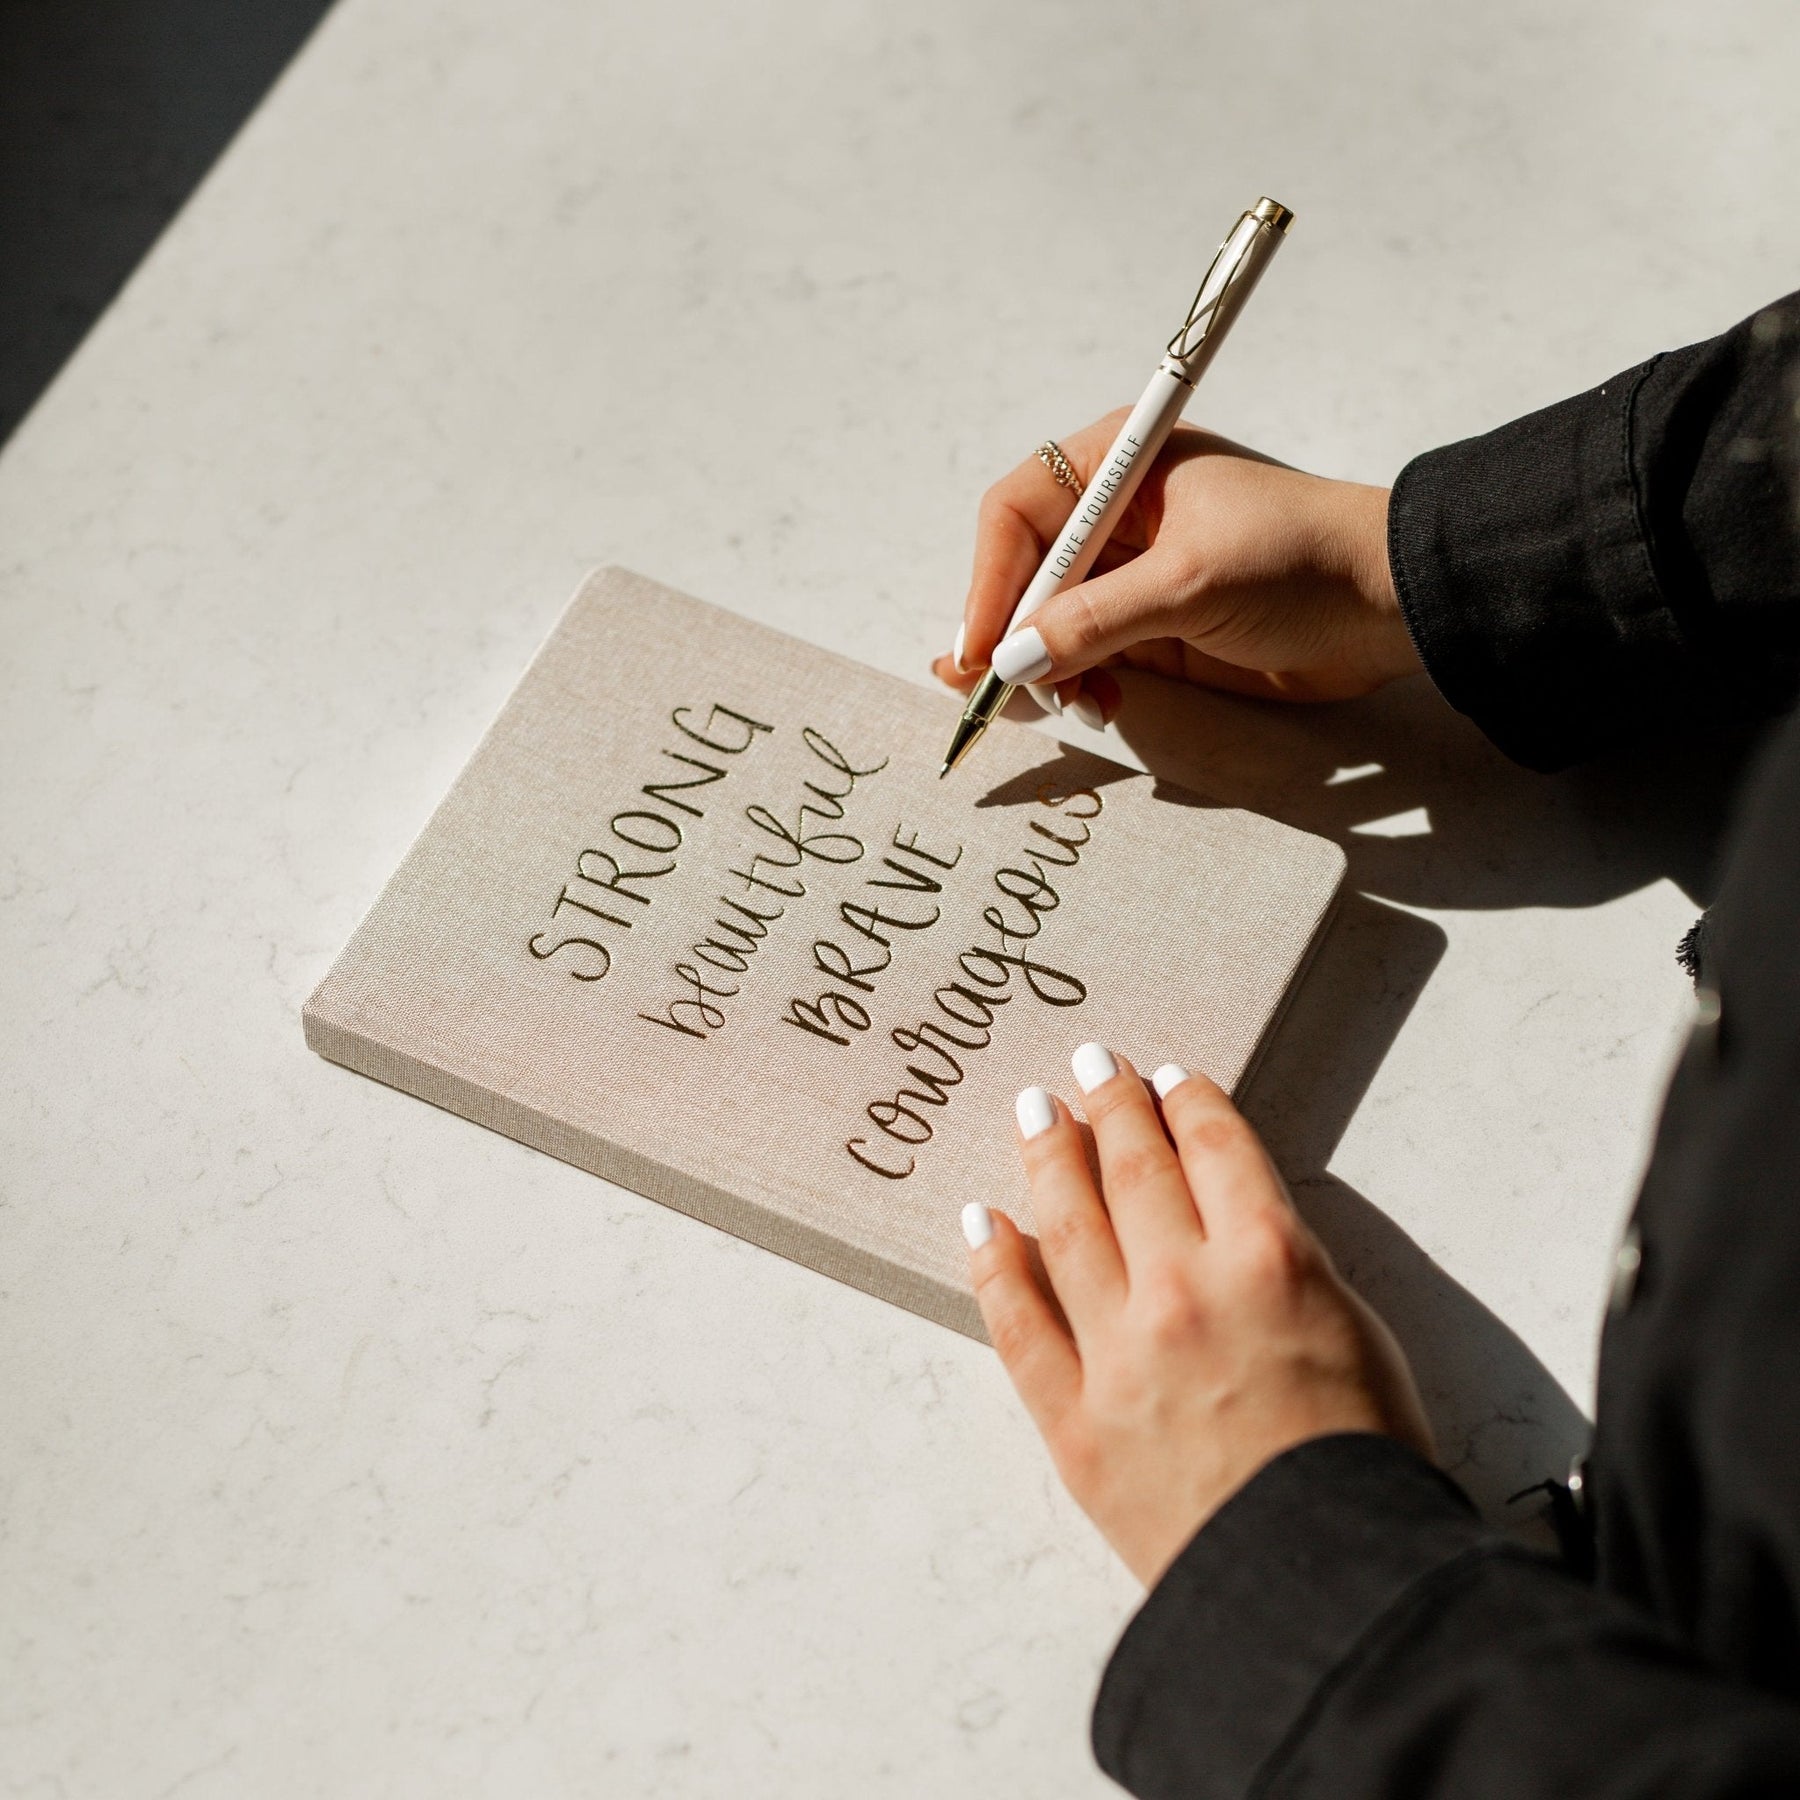 STRONG
beautiful
BRAVE
courageous
LOVE YOURSELF